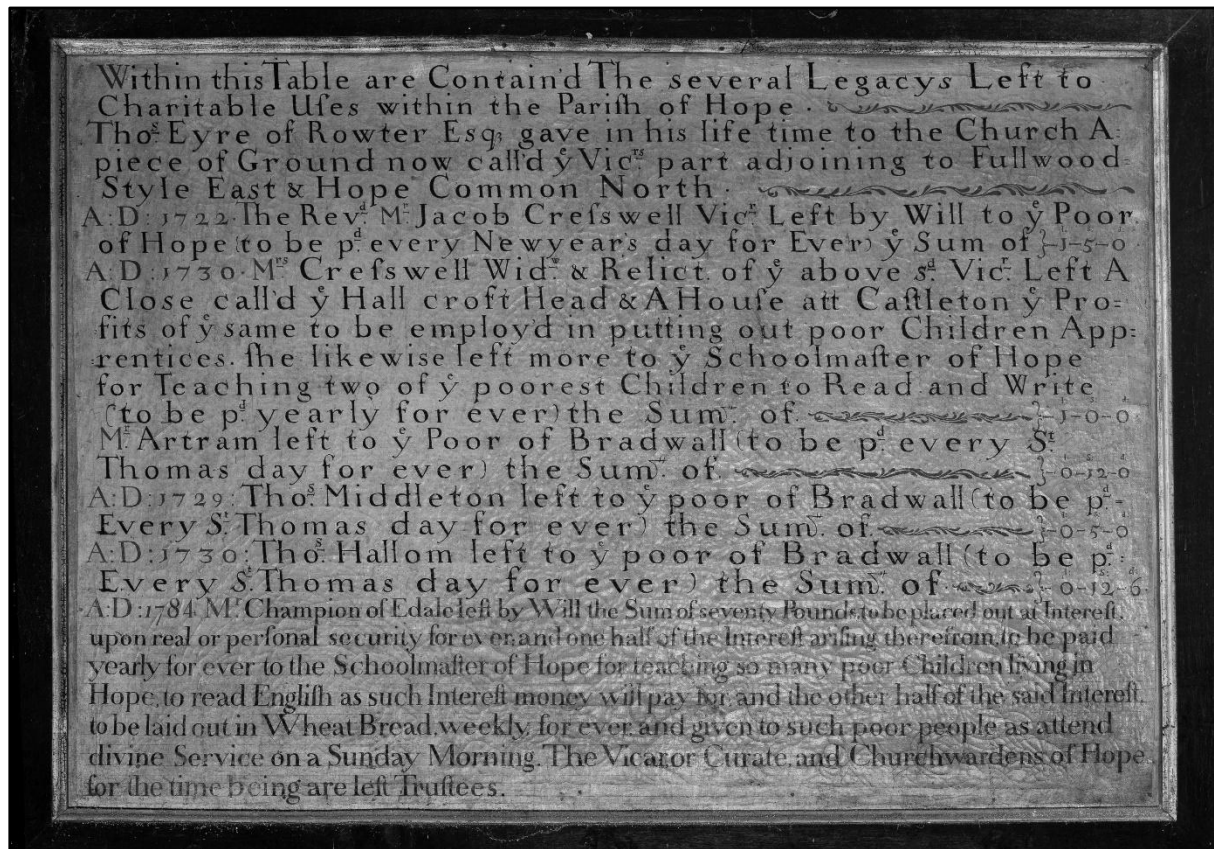 Within this Table are Contain'd The several Legacys Left to
Charitable Uſes within the Pariſh of Hope.
Thoˢ. Eyre of Rowter Esqꝫ gave in his life time to the Church A
piece of Ground now call'd yͤ Vicʳˢ part adjoining to Fullwood
Style East & Hope Common North.
A:D:1722. The Revᵈ. Mʳ. Jacob Creſswell Vicʳ. Left by Will to yͤ Poor
of Hope (to be pᵈ. every Newyears day for Ever) yͤ Sum of }-1-5-0
A:D:1730. Mʳˢ Creſswell Widʷ. & Relict of yͤ above sᵈ. Vicʳ. Left A
Close call'd yͤ Hall croft Head & A Houſe att Caſtleton yͤ Pro=
fits of yͤ same to be employ'd in putting out poor Children App=
rentices. ſhe likewise left more to yͤ Schoolmaſter of Hope
for Teaching two of yͤ poorest Children to Read and Write
(to be pᵈ. yearly for ever) the Sum of }-1-0-0
Mʳ. Artram left to yͤ Poor of Bradwall (to be pᵈ. every Sᵗ.
Thomas day for ever) the Sum of }-0-12-0
A:D:1729: Thoˢ. Middleton left to yͤ poor of Bradwall (to be pᵈ.=
Every Sᵗ. Thomas day for ever) the Sum of }-0-5-0
A:D:1730: Thoˢ. Hallom left to yͤ poor of Bradwall (to be pᵈ.
Every Sᵗ. Thomas day for ever) the Sum of } 0-12-6
A:D:1784. Mʳ. Champion of Edale left by Will the Sum of seventy Pounds, to be placed out at Intereſt,
upon real or perſonal security for ever, and one half of the Intereſt ariſing therefrom, to be paid
yearly for ever to the Schoolmaſter of Hope for teaching so many poor Children living in
Hope, to read Engliſh as such Intereſt money will pay for, and the other half of the said Intereſt,
to be laid out in Wheat Bread, weekly, for ever, and given to such poor people as attend
divine Service on a Sunday Morning. The Vicar, or Curate, and Churchwardens of Hope,
for the time being are left Truſtees.